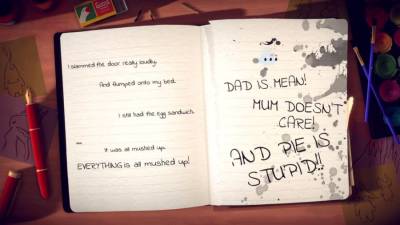 I slammed the door really loudly.
And flumped onto my bed.
I still had the egg sandwich.
...
It was all mushed up.
EVERYTHING is all mushed up!
...
DAD IS MEAN!
MUM DOESN'T
CARE!
AND PIE IS
STUPID!!